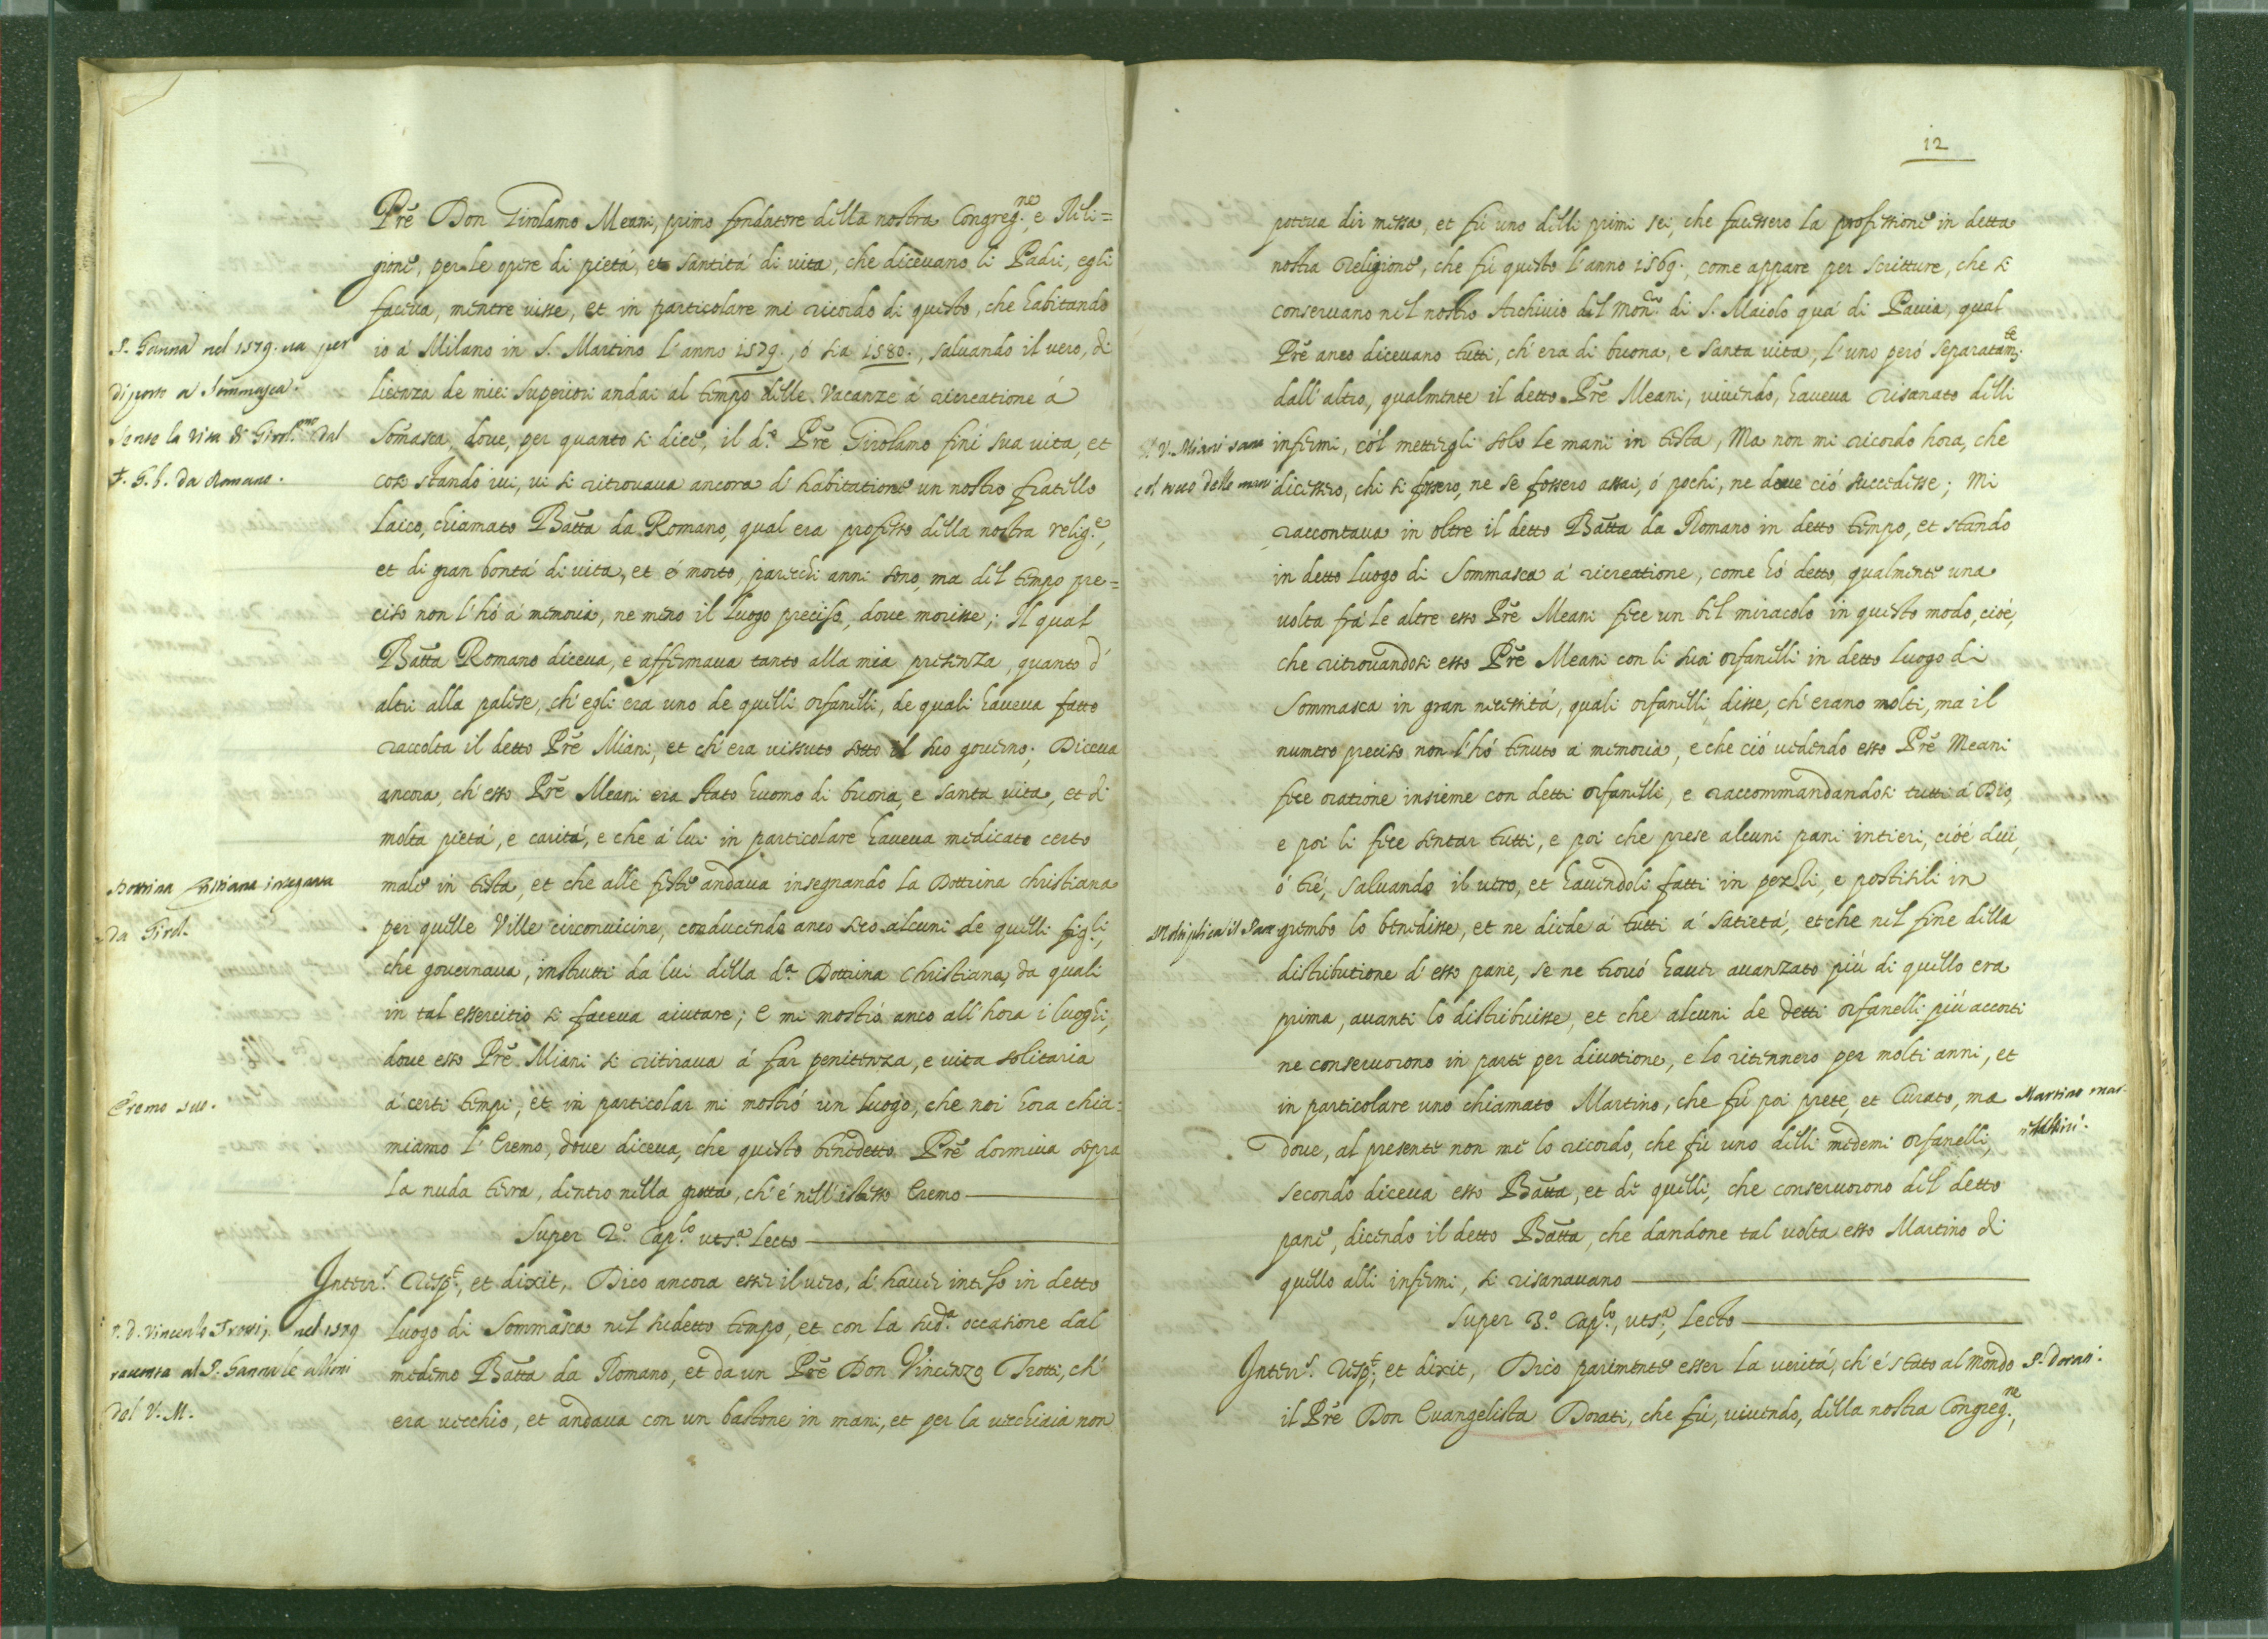 Prẽ Don Girolamo Meani, primo fondatore della nostra Congreg.ne, e Reli=
gione, per le opere di pietá, et santitá di vita, che dicevano li Padri, egli
faceva, mentre visse, et in particolare mi ricordo di questo, che habitando
io á Milano in S. Martino l'anno 1579., ó sia 1580., salvando il vero, di
licenza de miei Superiori andai al tempo delle Vacanze á ricreatione á
Som̃asca, dove, per quanto si dice, il d.º Prẽ Girolamo finí sua vita, et
cosi stando ivi, vi si ritrovava ancora d'habitatione un nostro fratello
laico, chiamato Bãtta da Romano, qual era professo della nostra relig.e,
et di gran bontá di vita, et é morto, parecchi anni sono, ma del tempo pre=
ciso non l'hó á memoria, ne meno il luogo preciso, dove morisse; Il qual
Bãtta Romano diceva, e affermava tanto alla mia presenza, quanto d'
altri alla palese, ch'egli era uno de quelli orfanelli, de quali haveva fatto
raccolta il detto Prẽ Miani, et ch'era vissuto sotto il suo governo; Diceva
ancora, ch'esso Prẽ Meani era stato huomo di buona, e santa vita, et di
molta pietá, e caritá, e che á lui in particolare haveva medicato certo
male in testa, et che alle feste andava insegnando la Dottrina christiana
per quelle Ville circonvicine, conducendo anco seco alcuni de quelli figli,
che governava, instrutti da lui della d.a Dottrina Christiana, da quali
in tal essercitio si faceva aiutare; e mi mostró anco all'hora i luoghi,
dove esso Prẽ Miani si ritirava á far penitenza, e vita solitaria
á certi tempi, et in particolar mi mostró un luogo, che noi hora chia=
miamo l'Eremo, dove diceva, che questo benedetto Prẽ dormiva sopra
la nuda terra, dentro nella grotta, ch'é nell'istesso Eremo
Super 2.º Cap.lo uts.a lecto
Interr.s Resp.t, et dixit, Dico ancora esser il vero, d'haver inteso in detto
luogo di Sommasca nel sudetto tempo, et con la sud.a occasione dal
medemo Bãtta da Romano, et da un Prẽ Don Vincenzo Trotti, ch'
era vecchio, et andava con un bastone in mani, et per la vecchiaia non
P. Ganna nel 1579. va per
diporto a Sommasca.
Sente la Vita di Girol.mo dal
f. G. b. da Romano.
Dottrina Cristiana insegnata
da Girol.
Eremo suo.
P. D. Vincenzo Trotti, nel 1579
racconta al P. Ganna le attioni
del V. M.
12
poteva dir messa, et fú uno delli primi sei, che facessero la professione in detta
nostra Religione, che fú questo l'anno 1569., come appare per scritture, che si
conservano nel nostro Archivio del Mon.rio di S. Maiolo quá di Pavia, qual
Prẽ anco dicevano tutti, ch'era di buona, e santa vita, l'uno peró separatam.te
dall'altro, qualmente il detto Prẽ Meani, vivendo, haveva risanato delli
infermi, cól mettergli solo le mani in testa, Ma non mi ricordo hora, che
dicessero, chi si fossero, ne se fossero assai, ó pochi, ne dove ció succedesse; Mi
raccontava in oltre il detto Bãtta da Romano in detto tempo, et stando
in detto luogo di Sommasca á ricreatione, come hó detto, qualmente una
volta frá le altre esso Prẽ Meani fece un bel miracolo in questo modo, cioé,
che ritrovandosi esso Prẽ Meani con li suoi orfanelli in detto luogo di
Sommasca in gran necessitá, quali orfanelli disse, ch'erano molti, ma il
numero preciso non l'hó tenuto á memoria, e che ció vedendo esso Prẽ Meani
fece oratione insieme con detti orfanelli, e raccommandandosi tutti á Dio,
e poi li fece sentar tutti, e poi che prese alcuni pani intieri, cióé dui,
ó tré, salvando il vero, et havendoli fatti in pezzi, e postisili in
grembo lo benedisse, et ne diede á tutti á satietá, et che nel fine della
distributione d'esso pane, se ne trovó haver avanzato piú di quello era
prima, avanti lo distribuisse, et che alcuni de detti orfanelli piú accorti
ne conservorono in parte per divotione, e lo ritennero per molti anni, et
in particolare uno chiamato Martino, che fú poi prete, et Curato, ma
dove, al presente non me lo ricordo, che fú uno delli medemi orfanelli,
secondo diceva esso Bãtta, et de quelli, che conservorono del detto
pane, dicendo il detto Bãtta, che dandone tal volta esso Martino di
quello alli infermi, si risanavano
Super 3.º Cap.lo, uts.a, lecto
Interr.s Resp.t, et dixit, Dico parimente esser la veritá, ch'é stato al mondo
il Prẽ Don Evangelista Dorati, che fú, vivendo, della nostra Congreg.ne,
V. Miani sana
col tocco delle mani
Moltiplica il Pane
Martino
P. Dorati.